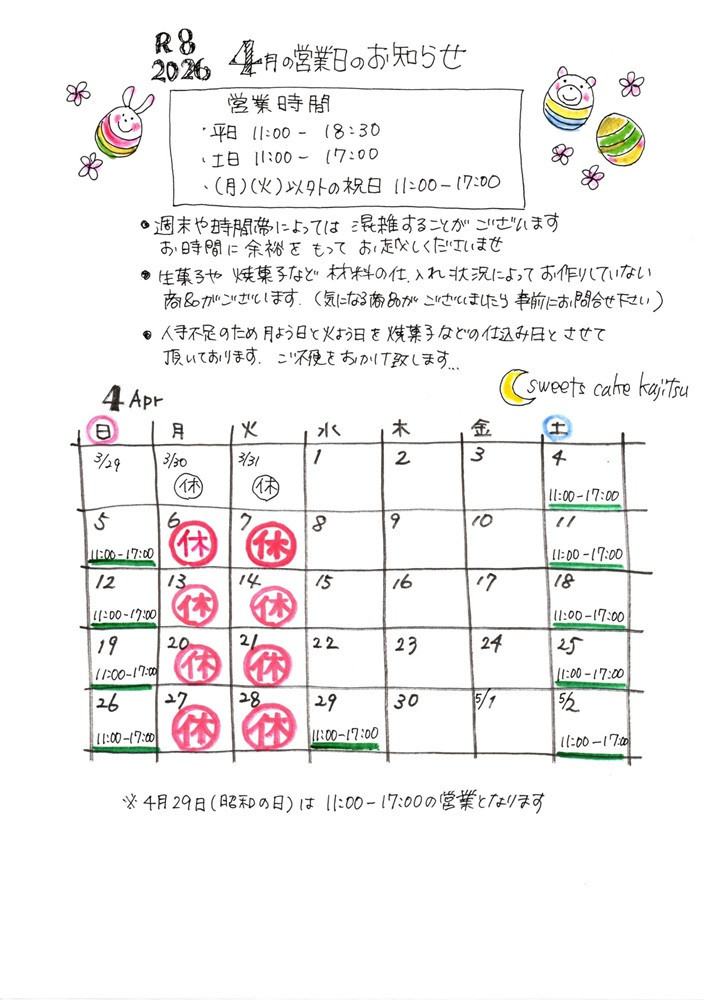 R8
2026 4月の営業日のお知らせ
営業時間
・平日 11:00 - 18:30
・土日 11:00 - 17:00
・(月)(火)以外の祝日 11:00-17:00
● 週末や時間帯によっては 混雑することがございます
お時間に余裕をもって お越しくださいませ
● 生菓子や 焼菓子など 材料の仕入れ状況によって お作りしていない
商品がございます. (気になる商品が ございましたら 事前にお問合せ下さい)
● 人手不足のため 月よう日と火よう日を 焼菓子などの仕込み日と させて
頂いております. ご不便をおかけ致します...
sweets cake kajitsu
4 Apr
日 月 火 水 木 金 土
3/29 3/30 3/31 1 2 3 4
休 休 11:00-17:00
5 6 7 8 9 10 11
11:00-17:00 休 休 11:00-17:00
12 13 14 15 16 17 18
11:00-17:00 休 休 11:00-17:00
19 20 21 22 23 24 25
11:00-17:00 休 休 11:00-17:00
26 27 28 29 30 5/1 5/2
11:00-17:00 休 休 11:00-17:00 11:00-17:00
※ 4月29日(昭和の日)は 11:00-17:00の営業となります